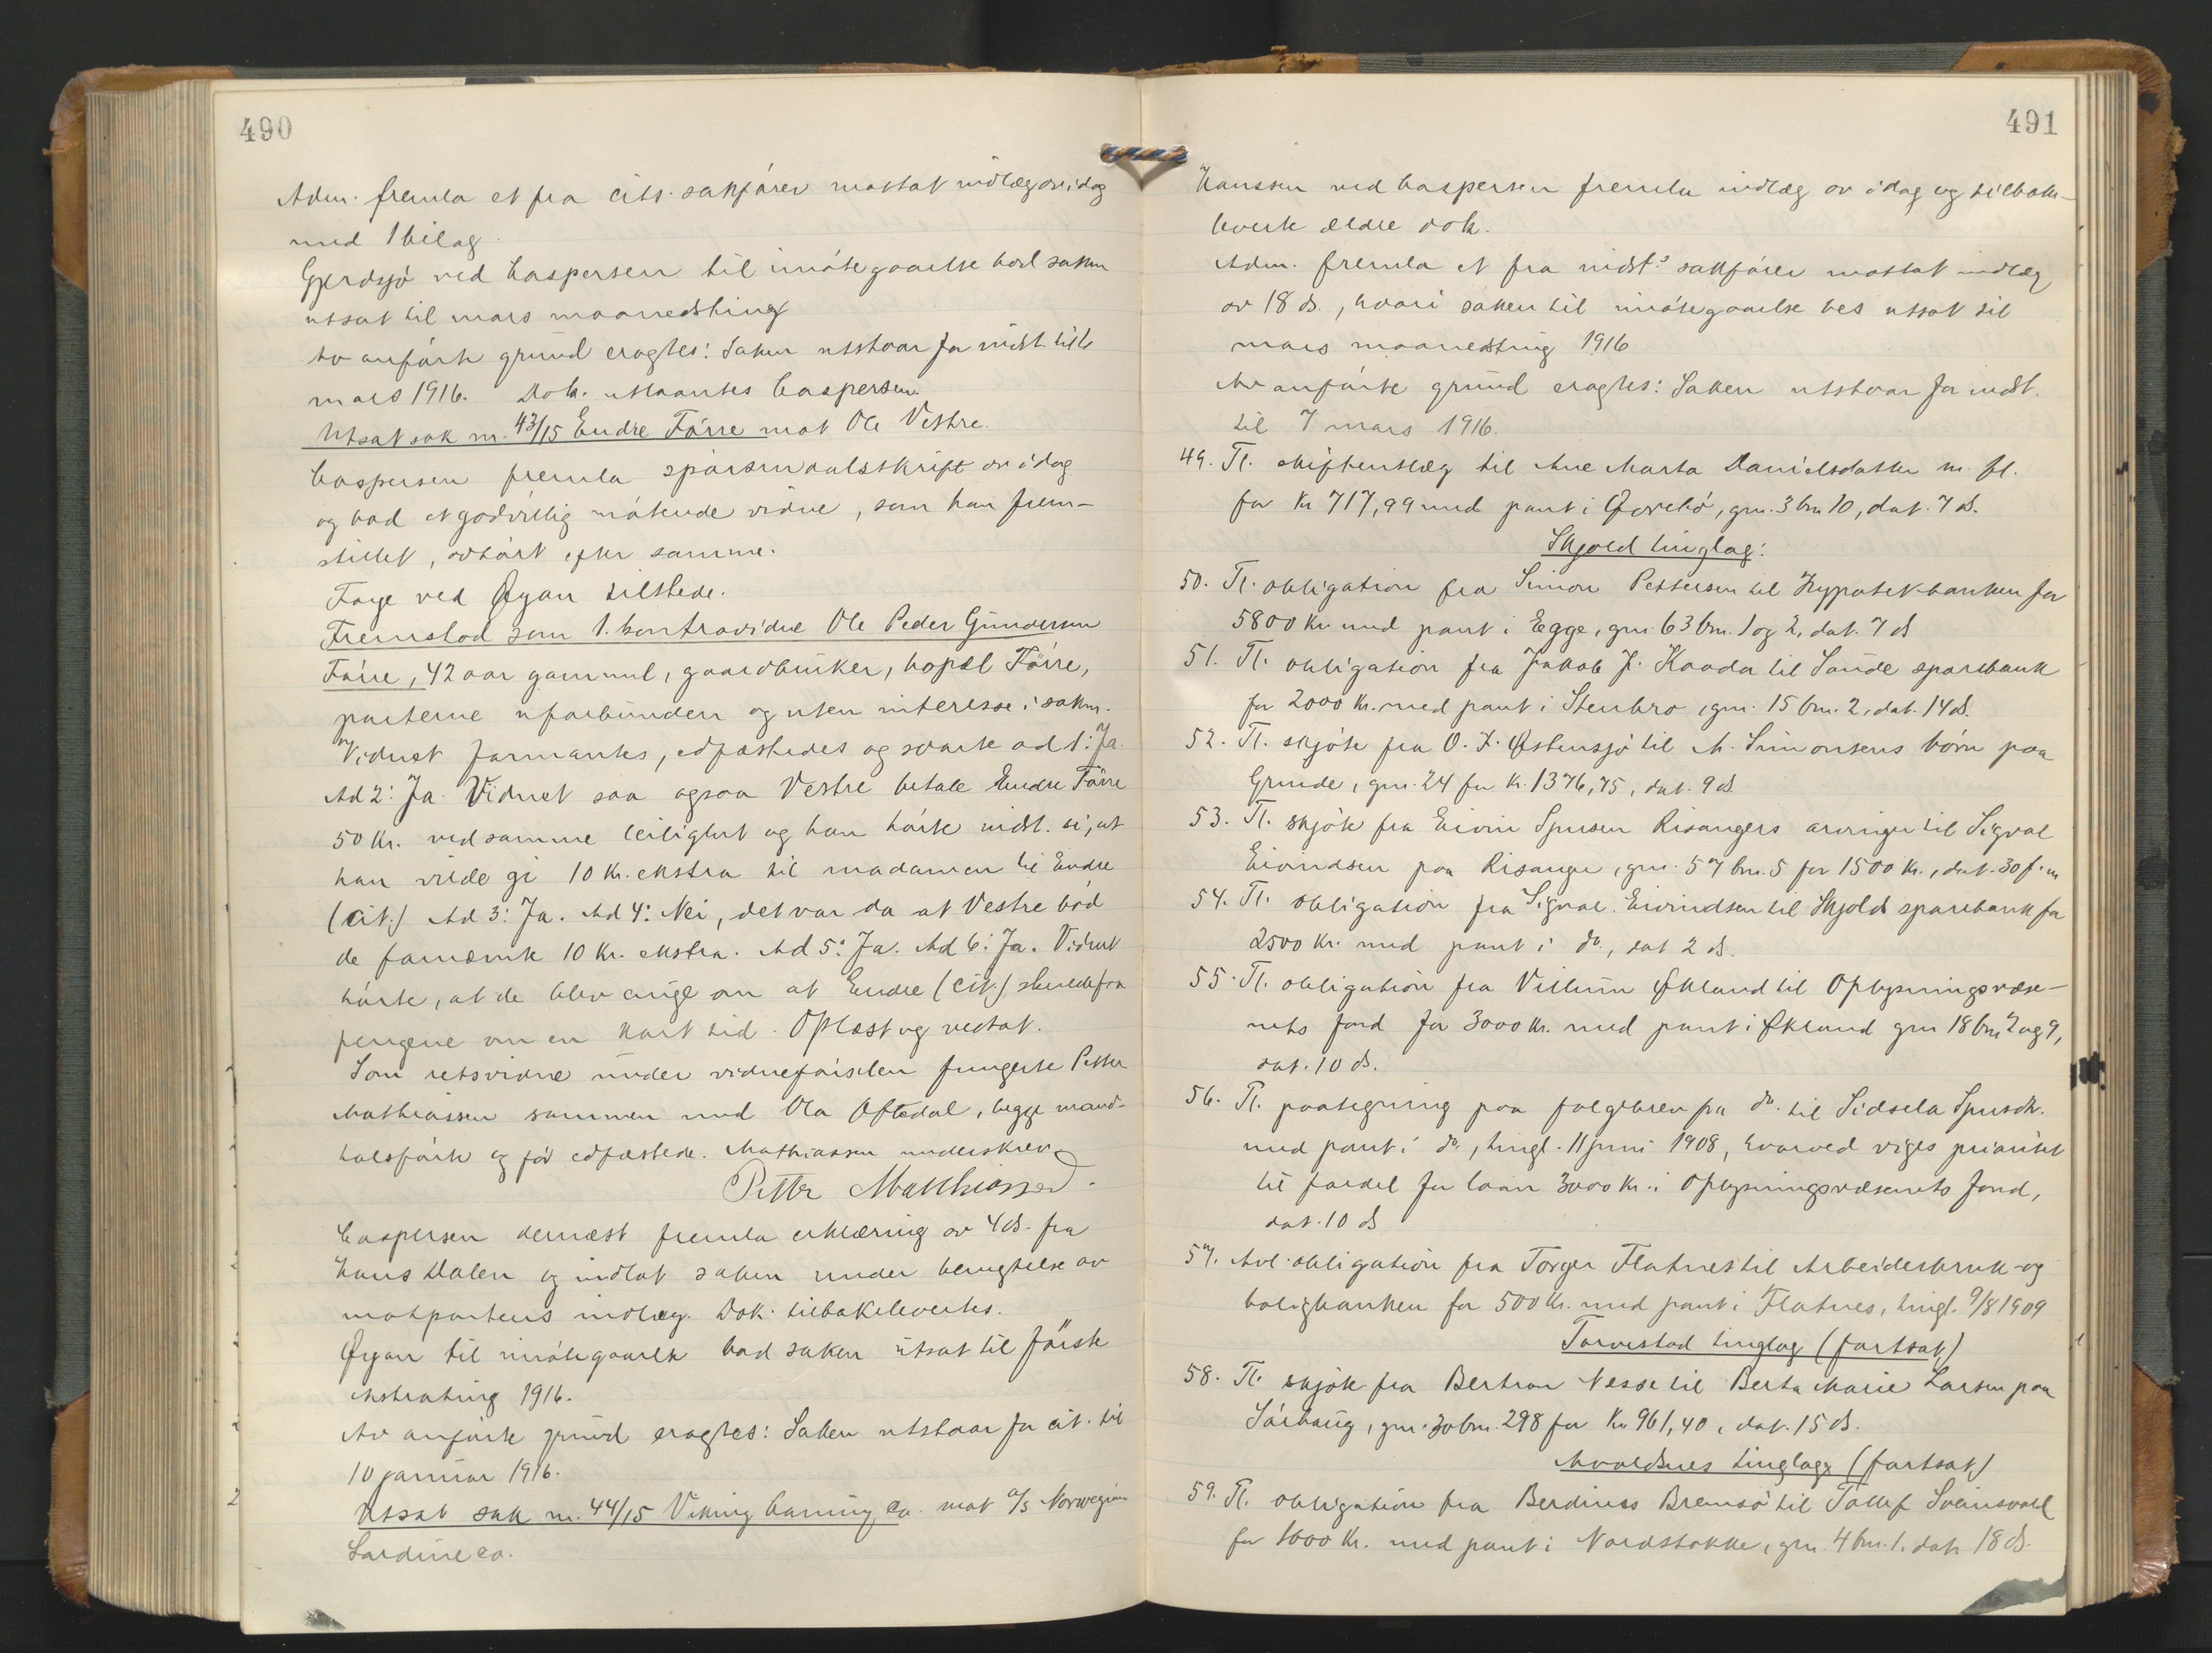 490
Adm. fremla et fra cits. sakfører mottat indlæg av idag
med 1 bilag.
Gjerdsjø ved Caspersen til imøtegaaelse bad saken
utsat til mars maanedsting
Av anførte grund eragtes: Saken utstaar for indst. til
mars 1916. Dok. utlaantes Caspersen.
Utsat sak nr. 43/15 Endre Førre mot Ole Vestre.
Caspersen fremla spørsmaalsskrift av idag
og bad et godvillig møtende vidne, som han frem-
stillet, avhørt efter samme.
Foye ved Øyan tilstede.
Fremstod som 1. kontravidne Ole Peder Gundersen
Førre, 42 aar gammel, gaardbruker, bopæl Førre,
parterne uforbunden og uten interesse i saken.
Vidnet formantes, edfæstedes og svarte ad 1: Ja.
Ad 2: Ja. Vidnet saa ogsaa Vestre betale Endre Førre
50 Kr. ved samme leilighet og han hørte indst. si, at
han vilde gi 10 Kr. ekstra til madamen til Endre
(Cit.) Ad 3: Ja. Ad 4: Nei, det var da at Vestre bød
de fornævnte 10 Kr. ekstra. Ad 5: Ja. Ad 6: Ja. Vidnet
hørte, at de blev enige om at Endre (Cit.) skulde faa
pengene om en kort tid. Oplæst og vedtat.
Som retsvidne under vidneførselen fungerte Petter
Mathiassen sammen med Ola Oftedal, begge mand-
talsførte og før edfæstede. Mathiassen underskrev
Petter Matthiassen.
Caspersen dernæst fremla erklæring av 4 ds. fra
Hans Dalen og indlot saken under benegtelse av
motpartens indlæg. Dok. tilbakelevertes.
Øyan til imøtegaaelse bad saken utsat til første
ekstrating 1916.
Av anførte grund eragtes: Saken utstaar for cit. til
10 januar 1916.
Utsat sak nr. 44/15 Viking Caning Co. mot a/s Norwegian
Sardine Co.
491
Hanssen ved Caspersen fremla indlæg av idag og tilbake-
leverte ældre dok.
Adm. fremla et fra indst.s sakfører mottat indlæg
av 18 ds., hvori saken til imøtegaaelse bes utsat til
mars maanedsting 1916
Av anførte grund eragtes: Saken utstaar for indst.
til 7 mars 1916.
49. Tl. skifteutlæg til Ane Marta Danielsdatter m. fl.
for Kr 717,99 med pant i Qvalø, gnr. 3 bnr 10, dat. 7 ds.
Skjold tinglag:
50. Tl. obligation fra Simon Pettersen til Hypotekbanken for
5800 Kr. med pant i Egge, gnr. 63 bnr. 1 og 2, dat. 7 ds
51. Tl. obligation fra Jakob J. Kaada til Sande sparebank
for 2000 Kr. med pant i Stenbro, gnr. 15 bnr. 2, dat. 14 ds.
52. Tl. skjøte fra O. J. Østensjø til M. Simonsens børn paa
Grinde, gnr. 24 for Kr. 1376,75, dat. 9 ds.
53. Tl. skjøte fra Eivin Spersen Risangers arvinger til Sigval
Eivindsen paa Risanger, gnr. 57 bnr. 5 for 1500 Kr., dat. 30 f. m
54. Tl. obligation fra Sigval Eivindsen til Skjold sparebank for
2500 Kr. med pant i do., dat 2 ds.
55. Tl. obligation fra Villum Økland til Oplysningsvæse-
nets fond for 3000 Kr. med pant i Økland gnr 18 bnr 2 og 9,
dat. 10 ds.
56. Tl. paategning paa følgebrev fra do. til Sidsela Spersdtr.
med pant i do., tingl. 11 juni 1908, hvorved viges prioritet
til fordel for laan 3000 Kr. i Oplysningsvæsenets fond,
dat. 10 ds
57. Avl. obligation fra Torger Flatnes til Arbeiderbruk- og
boligbanken for 500 Kr. med pant i Flatnes, tingl. 9/8 1909
Torvestad tinglag (fortsat)
58. Tl. skjøte fra Bertran Nesse til Berta Marie Larsen paa
Sørhaug, gnr. 30 bnr. 298 for Kr. 961,40, dat. 15 ds.
Avaldsnes tinglag (fortsat)
59. Tl. obligation fra Berdines Bremsø til Tollef Sveinsvoll
for 1600 Kr. med pant i Nordstokke, gnr. 4 bnr. 1, dat. 18 ds.